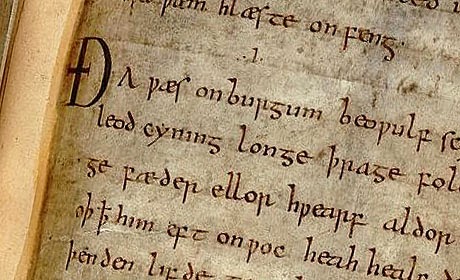 þam hlæste onfeng·
.I.
ÐA ƿæs onburgum beoƿulf sc
leod cyning longe þrage fol
ge fæder ellor hƿearf aldor
oþꝥ him eft onƿoc heah heal
þenden lifde